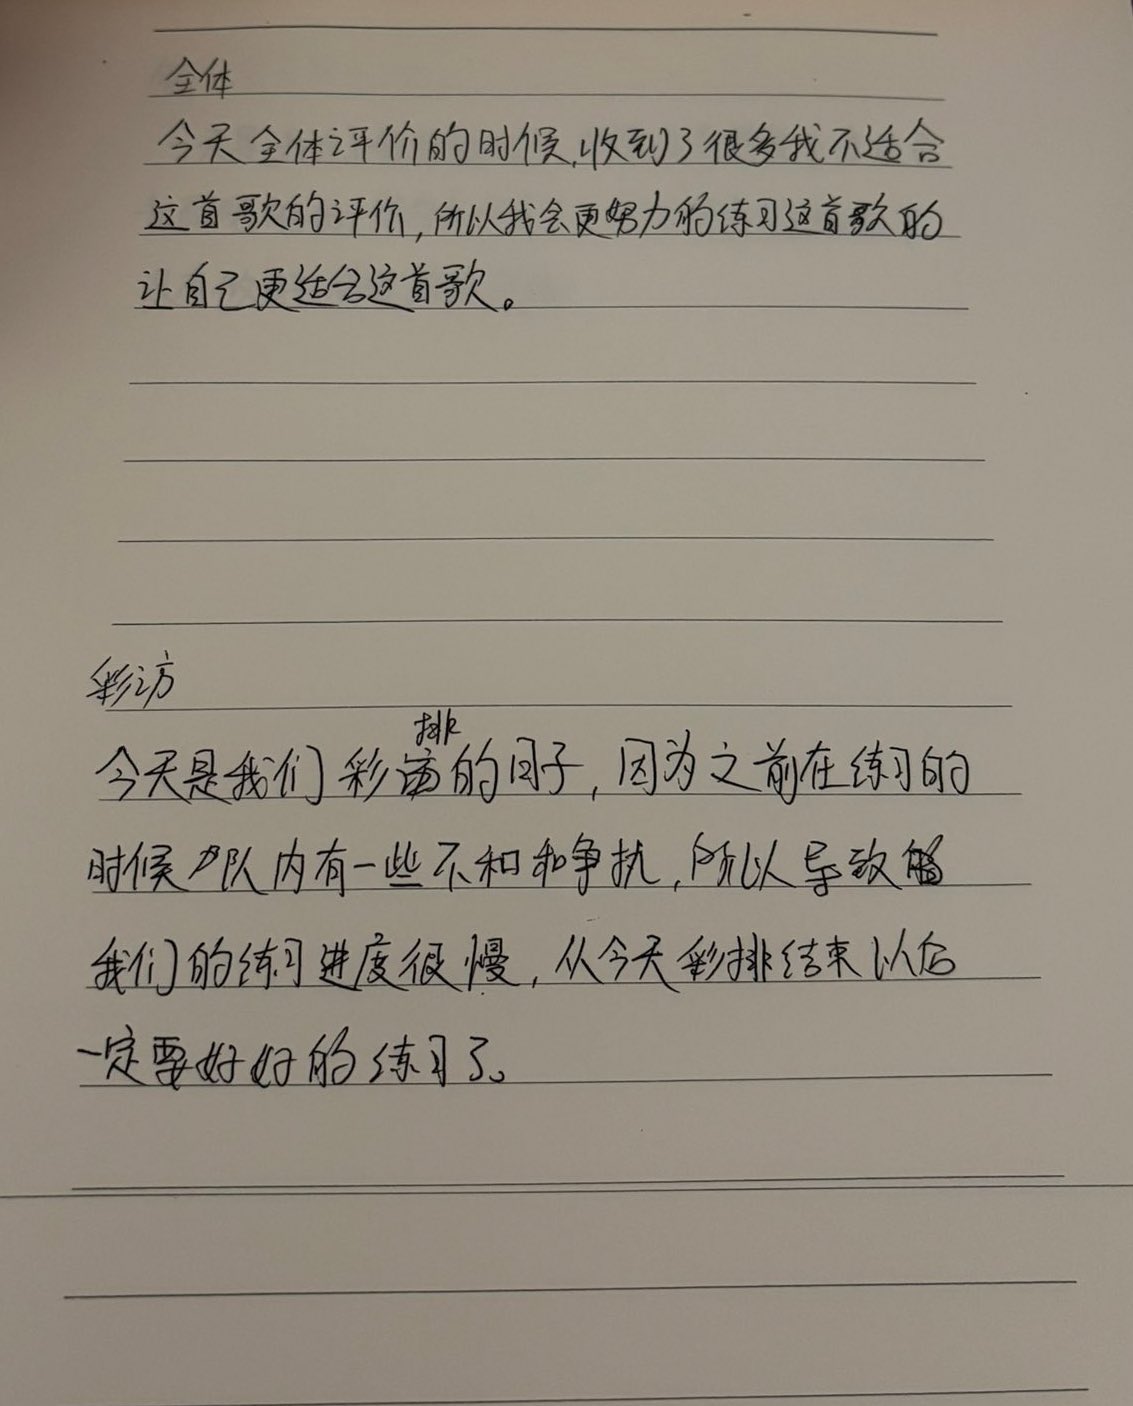 全体
今天全体评价的时候,收到了很多我不适合
这首歌的评价,所以我会更努力的练习这首歌的
让自己更适合这首歌。
彩访
排
今天是我们彩的日子,因为之前在练习的
时候队内有一些不和和争执,所以导致
我们的练习进度很慢,从今天彩排结束以后
一定要好好的练习了。